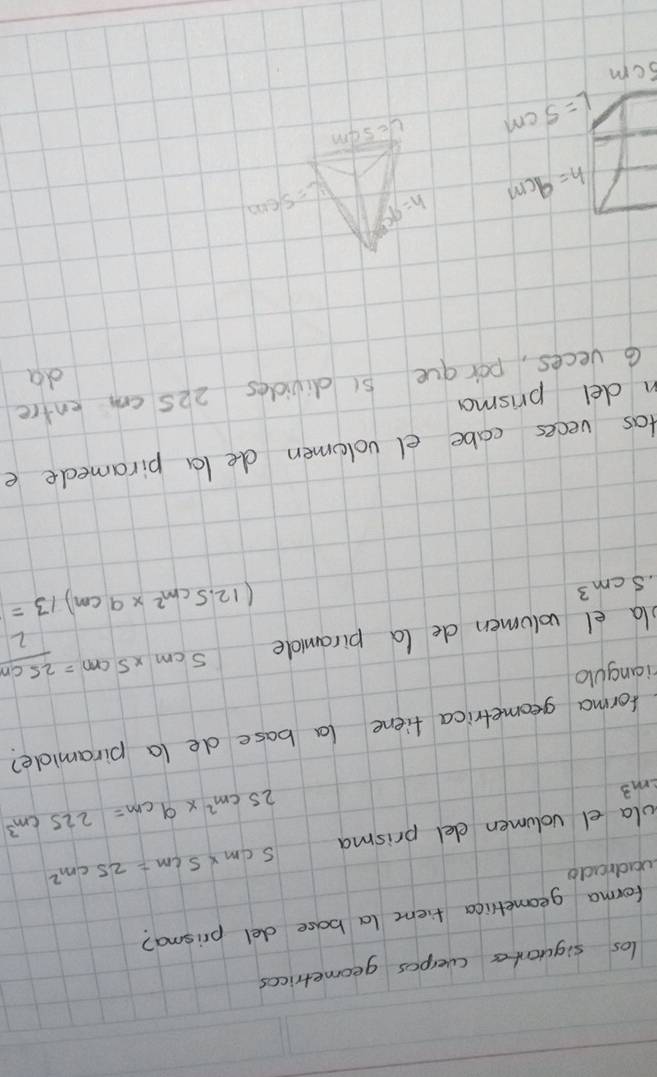 los siguientes cuerpos geometricos
forma geometrica tiene la base del prisma?
uadrado
ula el volumen del prisma 5 cm x 5 cm = 25 cm²
cm3
25 cm² x 9 cm = 225 cm³
forma geometrica tiene la base de la piramide?
riangulo
ula el volumen de la piramide 5 cm x 5 cm = 25 cm
2
.5 cm3
(12.5 cm² x 9 cm) 13 =
tas veces cabe el volumen de la piramede e
n del prisma
6 veces, porque si divides 225 cm entre
da
h=9cm
L=5cm
5cm
h=9cm
L=5cm
L=5cm